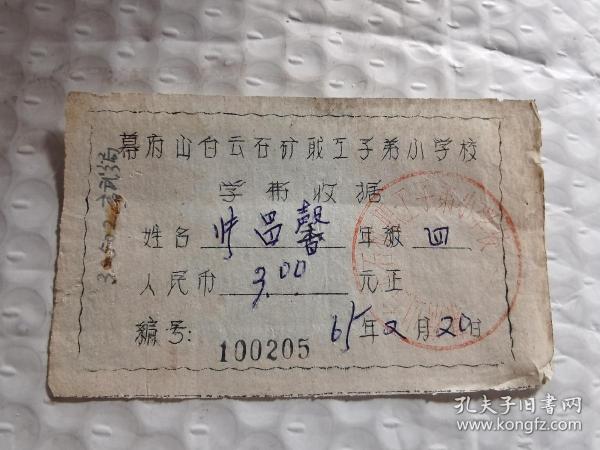 幕府山白云石矿职工子弟小学校
学杂收据
姓名 帅昌馨 年级 四
人民币 3.00 元正
65年2月20日
编号: 100205
孔夫子旧书网
www.kongfz.com